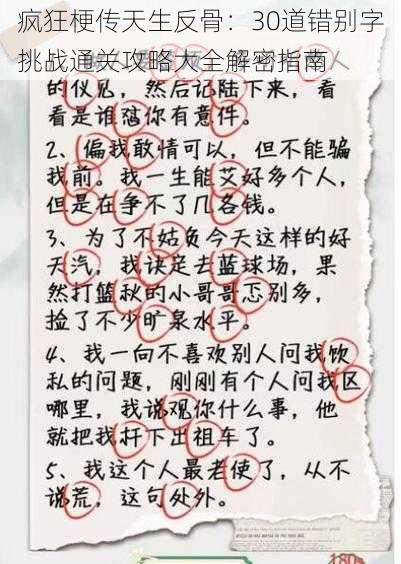 疯狂梗传天生反骨：30道错别字
挑战通关攻略大全解密指南
的仪见，然后记陆下来，看
看是谁惢你有意件。
2、偏我敢情可以，但不能骗
我前。我一生能艾好多个人，
但是在争不了几各钱。
3、为了不姑负今天这样的好
天汽，我诀定去蓝球场，果
然打篮秋的小哥哥忑别多，
捡了不少旷泉水平。
4、我一向不喜欢别人问我饮
私的问题，刚刚有个人问我区
哪里，我说观你什么事，他
就把我扞下出祖车了。
5、我这个人最老使了，从不
说荒，这句处外。